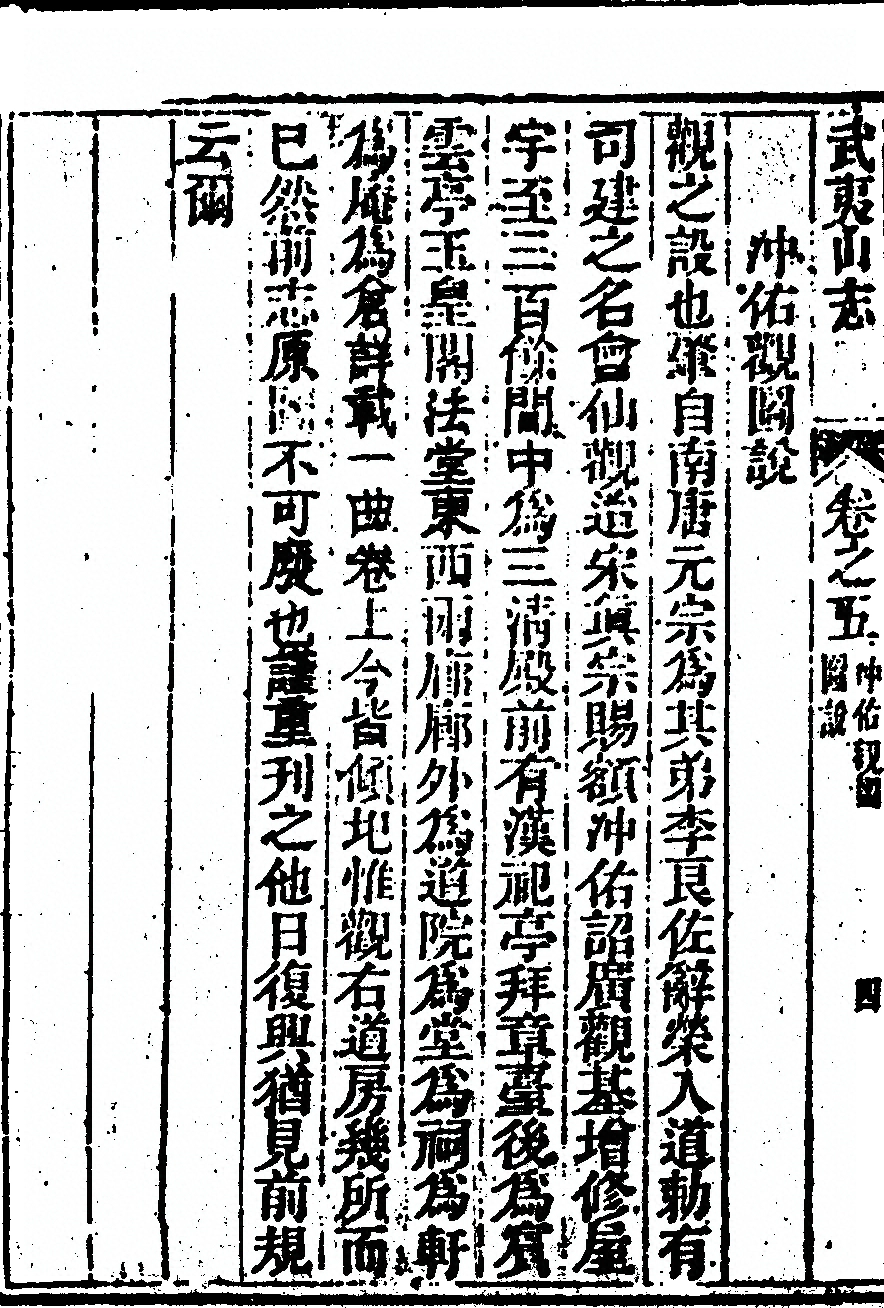 武夷山志 卷之五 沖佑觀圖說 四
沖佑觀圖說
觀之設也繇自南唐元宗為其弟李良佐辭榮入道勅有
司建之名會仙觀迨宋真宗賜額沖佑詔廣觀基增修屋
宇至三百餘間中為三清殿前有漢祀亭拜章臺後為賓
雲亭玉皇閣法堂東西兩廊廊外為道院為堂為祠為軒
為庵為倉詳載一曲卷上今皆傾圮惟觀右道房幾所而
已然前志原圖不可廢也謹重刊之他日復興猶見前規
云爾